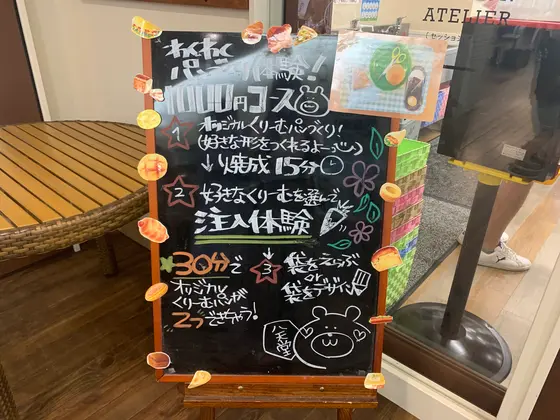 わくわく
パン作り体験!
1000円コース
1 オリジナルくりーむパンづくり!
(好きな形をつくれるよー)
↓焼成15分
2 好きなくりーむを選んで
注入体験
30分で
オリジナル
くりーむパンが
2つできちゃう!
↓
3 袋をえらぶ
or
袋をデザイン
八天堂
ATELIER